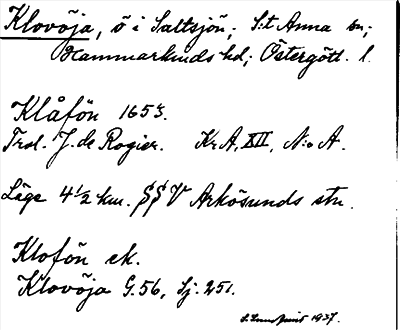 Klovöja, ö i Saltsjön; S:t Anna sn;
Hammarkinds hd; Östergötl. l.
Klåfön 1653.
Trol. J. de Rogier. Kr.A, XII, N:o A.
Läge 4 1/2 km. SSV Arkösunds stn.
Klofön ek.
Klovöja G.56, Sj. 251.
S. Lundquist 1937.